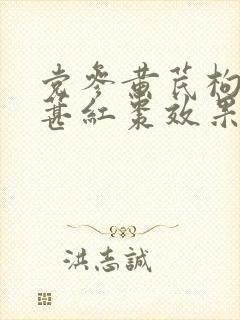 党参黄芪枸
葚红枣效果
洪志誠